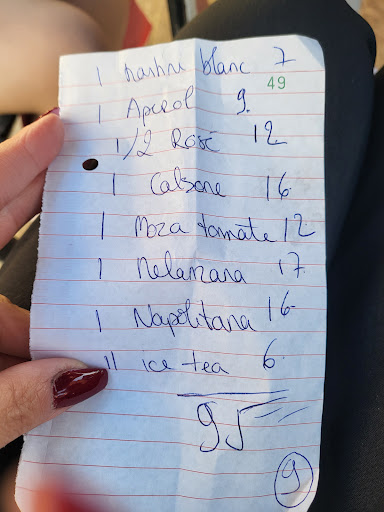 1 Martini blanc 7
49
1 Aperol 9.
1/2 Rosé 12
1 Calsone 16
1 Moza tomate 12
1 Melanzana 17
1 Napolitana 16
11 ice tea 6.
95
9